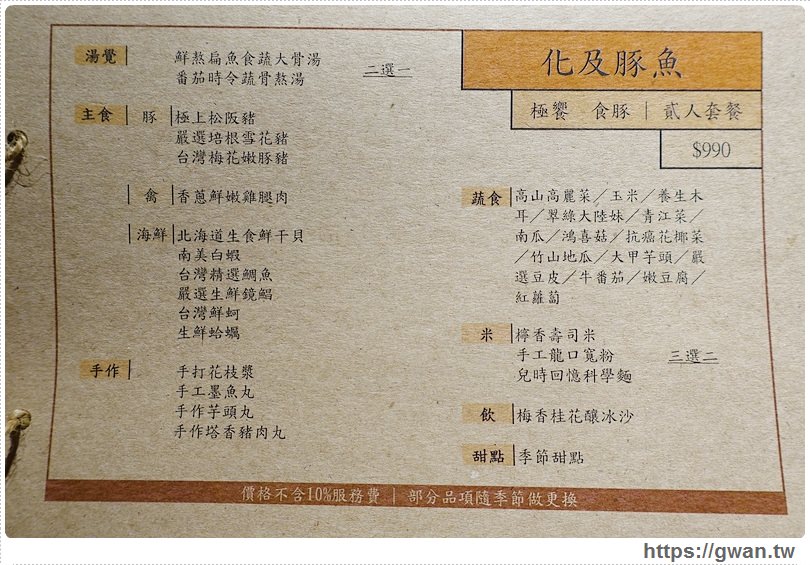 化及豚魚
極饗 食豚｜貳人套餐
$990
湯覺 鮮熬扁魚食蔬大骨湯
番茄時令蔬骨熬湯
二選一
主食 豚 極上松阪豬
嚴選培根雪花豬
台灣梅花嫩豚豬
禽 香蔥鮮嫩雞腿肉
海鮮 北海道生食鮮干貝
南美白蝦
台灣精選鯛魚
嚴選生鮮鏡鯧
台灣鮮蚵
生鮮蛤蠣
手作 手打花枝漿
手工墨魚丸
手作芋頭丸
手作塔香豬肉丸
蔬食 高山高麗菜／玉米／養生木
耳／翠綠大陸妹／青江菜／
南瓜／鴻喜菇／抗癌花椰菜
／竹山地瓜／大甲芋頭／嚴
選豆皮／牛番茄／嫩豆腐／
紅蘿蔔
米 檸香壽司米
手工龍口寬粉
兒時回憶科學麵
三選二
飲 梅香桂花釀冰沙
甜點 季節甜點
價格不含10%服務費｜部分品項隨季節做更換
https://gwan.tw